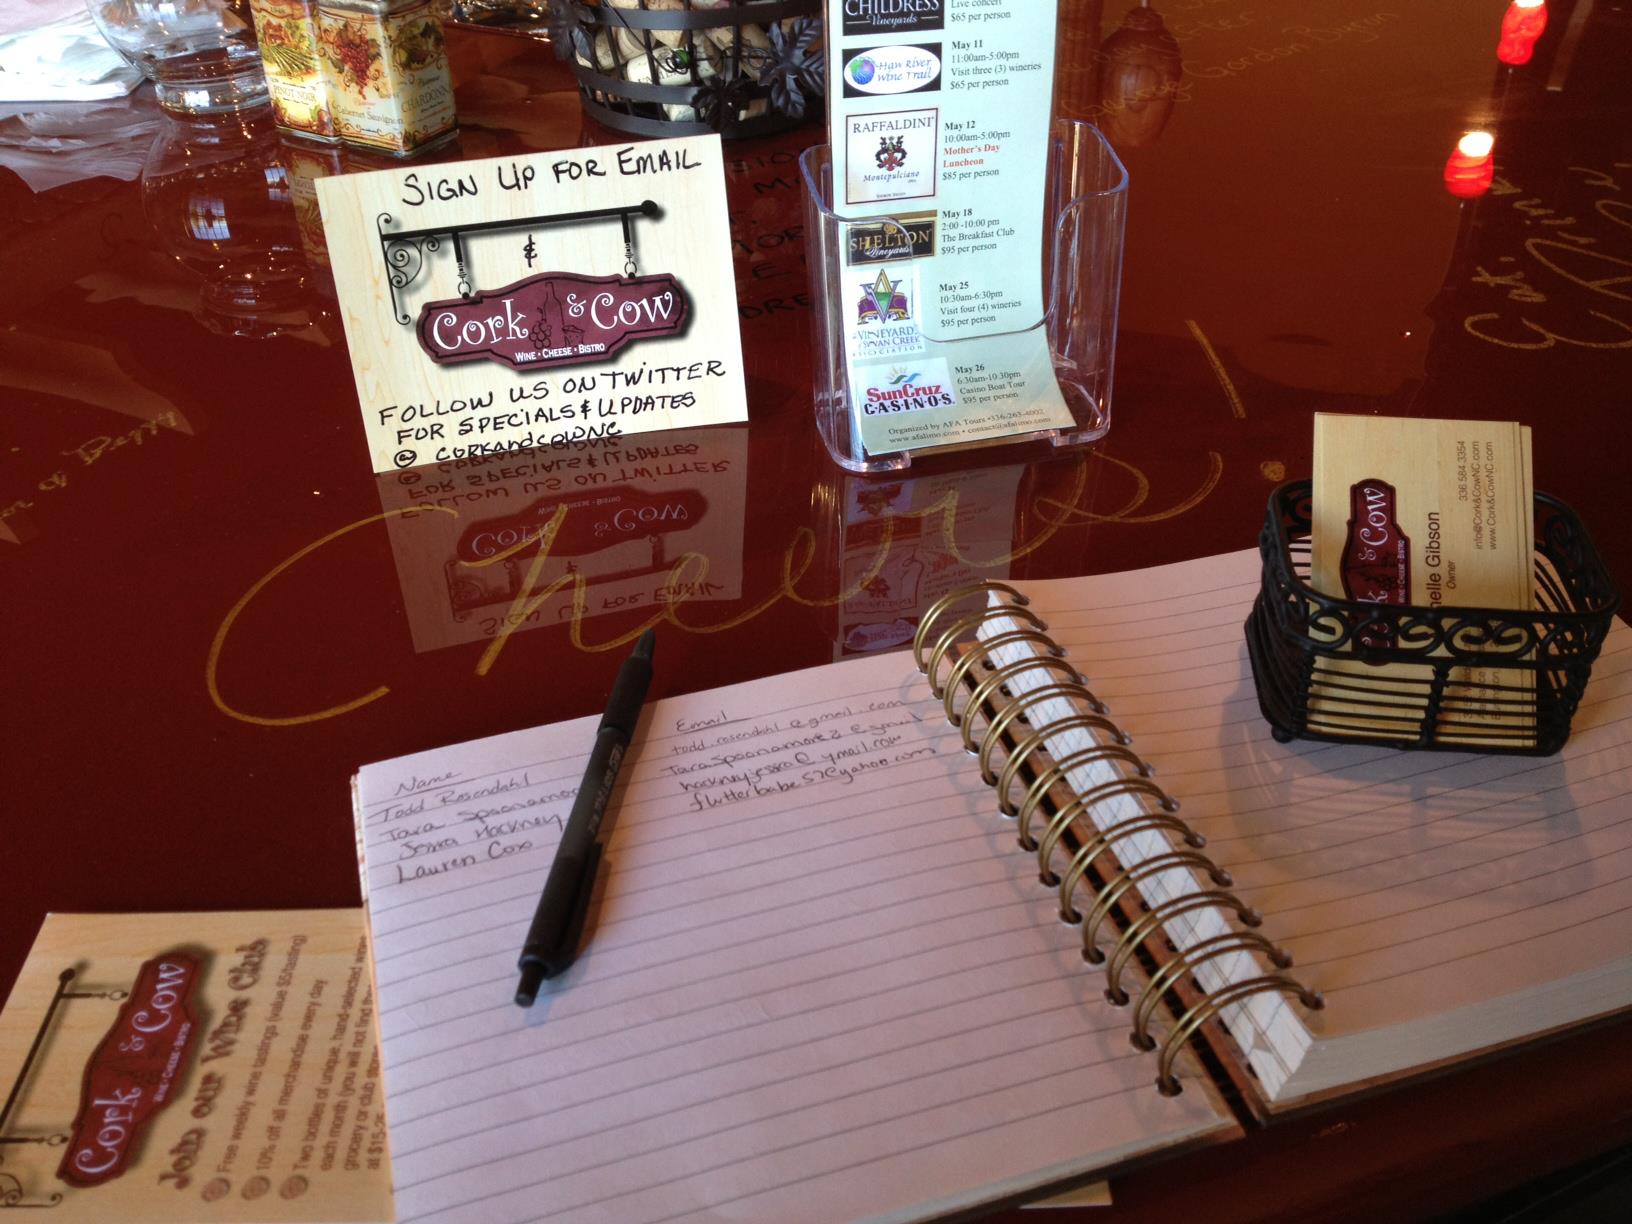 PINOT NOIR
Cabernet Sauvignon
CHARDONNA
SIGN UP FOR EMAIL
&
Cork & Cow
WINE • CHEESE • BISTRO
FOLLOW US ON TWITTER
FOR SPECIALS & UPDATES
@ CORKANDCOWNC
CHILDRESS
Vineyards
Live concert
$65 per person
Haw River
Wine Trail
May 11
11:00am-5:00pm
Visit three (3) wineries
$65 per person
RAFFALDINI
Montepulciano
May 12
10:00am-5:00pm
Mother's Day
Luncheon
$85 per person
SHELTON
Vineyards
May 18
2:00 -10:00 pm
The Breakfast Club
$95 per person
VINEYARDS
SWAN CREEK
ASSOCIATION
May 25
10:30am-6:30pm
Visit four (4) wineries
$95 per person
SunCruz
C•A•S•I•N•O•S
May 26
6:30am-10:30pm
Casino Boat Tour
$95 per person
Organized by AFA Tours •336-263-4002
www.afalimo.com • contact@afalimo.com
Cheers!
Eat.
Cork & Cow
WINE • CHEESE • BISTRO
nelle Gibson
Owner
336.584.3354
info@Cork&CowNC.com
www.Cork&CowNC.com
Name
Todd Rosendahl
Tara Spoonamore
Jessra Hackney
Lauren Cox
Email
todd.rosendahl@gmail.com
flutterbabe57@yahoo.com
Cork & Cow
WINE • CHEESE • BISTRO
Join our Wine Club
Free weekly wine tastings (value $5/tasting)
10% off all merchandise every day
Two bottles of unique, hand-selected wine
each month (you will not find the
grocery or club
at $15-